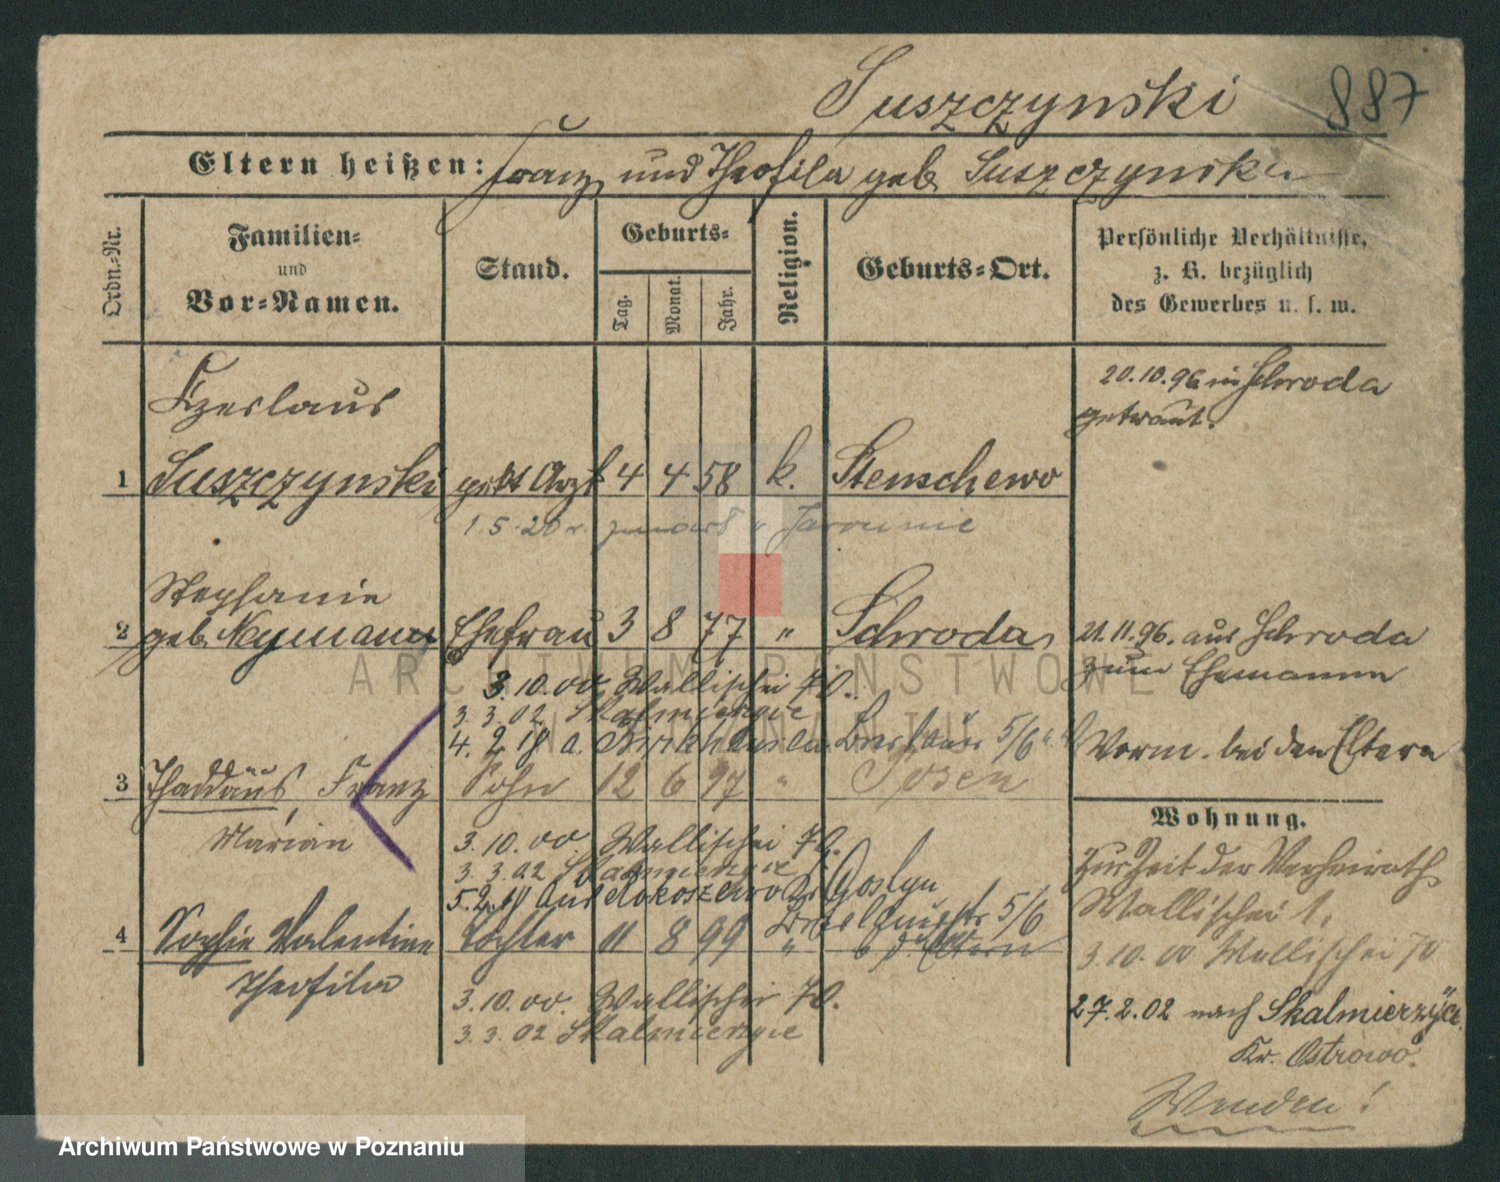 Suszczynski 887
Eltern heißen: Franz und Theofila geb Suszczynska
Ordn.-Nr.
Familien-
und
Vor-Namen.
Stand.
Geburts-
Tag. Monat. Jahr.
Religion.
Geburts-Ort.
Persönliche Verhältnisse,
z. B. bezüglich
des Gewerbes u. s. w.
Czeslaus
20.10.96 in Schroda
getraut.
1 Suszczynski prkt Arzt 4 4 58 k. Stenschewo
1.5.20
Stephanie
2 geb. Neymann Ehefrau 3 8 77 " Schroda
21.11.96. aus Schroda
zum Ehemanne
3.10.00 Wallischei 70.
3.3.02 Skalmierzyce
4.2.18 a. Breslauer 5/6
Vorm. bei den Eltern
3 Thaddäus, Franz Sohn 12 6 97 " Posen
Marian
Wohnung.
3.10.00. Wallischei 70.
3.3.02 Skalmierzyce
Zur Zeit der Verheirath
Wallischei 1.
5.2.18 aus Rokoszewo Kr Goslyn
Breslauerstr 5/6
4 Sophie Valentine Tochter 11 8 99 " b d. Eltern
Theofila
3.10.00 Wallischei 70
3.10.00. Wallischei 70.
3.3.02 Skalmierzyce
27.2.02 nach Skalmierzyce
Kr. Ostrowo.
Wenden!
ARCHIWUM PAŃSTWOWE
W POZNANIU
Archiwum Państwowe w Poznaniu